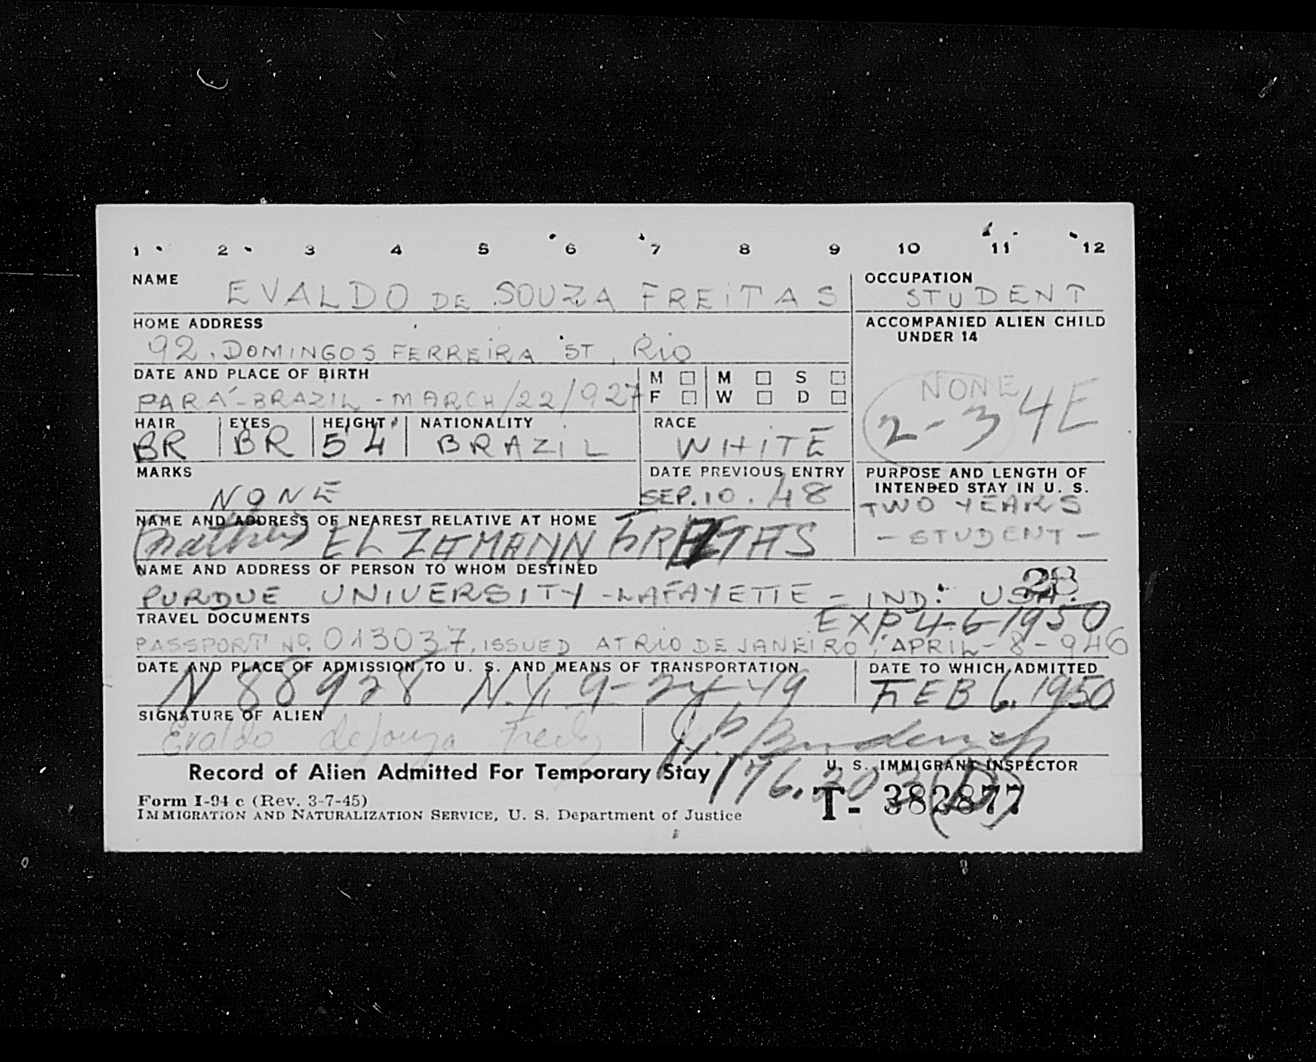 1 2 3 4 5 6 7 8 9 10 11 12
NAME EVALDO DE SOUZA FREITAS
OCCUPATION STUDENT
HOME ADDRESS
92, DOMINGOS FERREIRA ST, RIO
ACCOMPANIED ALIEN CHILD
UNDER 14
NONE
2-3 4E
DATE AND PLACE OF BIRTH
PARÁ-BRAZIL - MARCH/22/927
M □ M □ S □
F □ W □ D □
HAIR EYES HEIGHT NATIONALITY RACE
BR BR 5 4 BRAZIL WHITE
MARKS
NONE
DATE PREVIOUS ENTRY
SEP. 10. 48
PURPOSE AND LENGTH OF
INTENDED STAY IN U. S.
TWO YEARS
- STUDENT -
NAME AND ADDRESS OF NEAREST RELATIVE AT HOME
(mother) ELZAMANN FREITAS
NAME AND ADDRESS OF PERSON TO WHOM DESTINED
28
PURDUE UNIVERSITY - LAFAYETTE - IND. USA.
TRAVEL DOCUMENTS
EXP. 4-6-1950
PASSPORT No. 013037, ISSUED AT RIO DE JANEIRO, APRIL-8-946
DATE AND PLACE OF ADMISSION TO U. S. AND MEANS OF TRANSPORTATION
N 88928 N.Y. 9-24-49
DATE TO WHICH ADMITTED
FEB 6, 1950
SIGNATURE OF ALIEN
Evaldo de Souza Freitas
U. S. IMMIGRANT INSPECTOR
Record of Alien Admitted For Temporary Stay
176.202(D)
T- 382877
Form I-94 c (Rev. 3-7-45)
IMMIGRATION AND NATURALIZATION SERVICE, U. S. Department of Justice